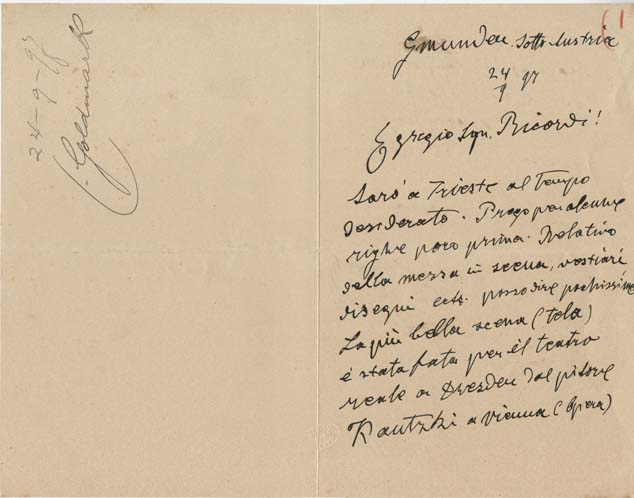 24-9-97
C. Goldmark
(1
Gmunden. Sotto Austria
24/9 97
Egregio Sgn. Ricordi!
Saró a Trieste al tempo
desiderato. Prego per alcune
righe poco prima. Relativo
della mezza in scena, vestiari
disegni ect. posso dire pochissime
La più bella scena (tela)
é stata fata per el teatro
reale a Dresden dal pitore
Kautzki a Vienna (Opera)